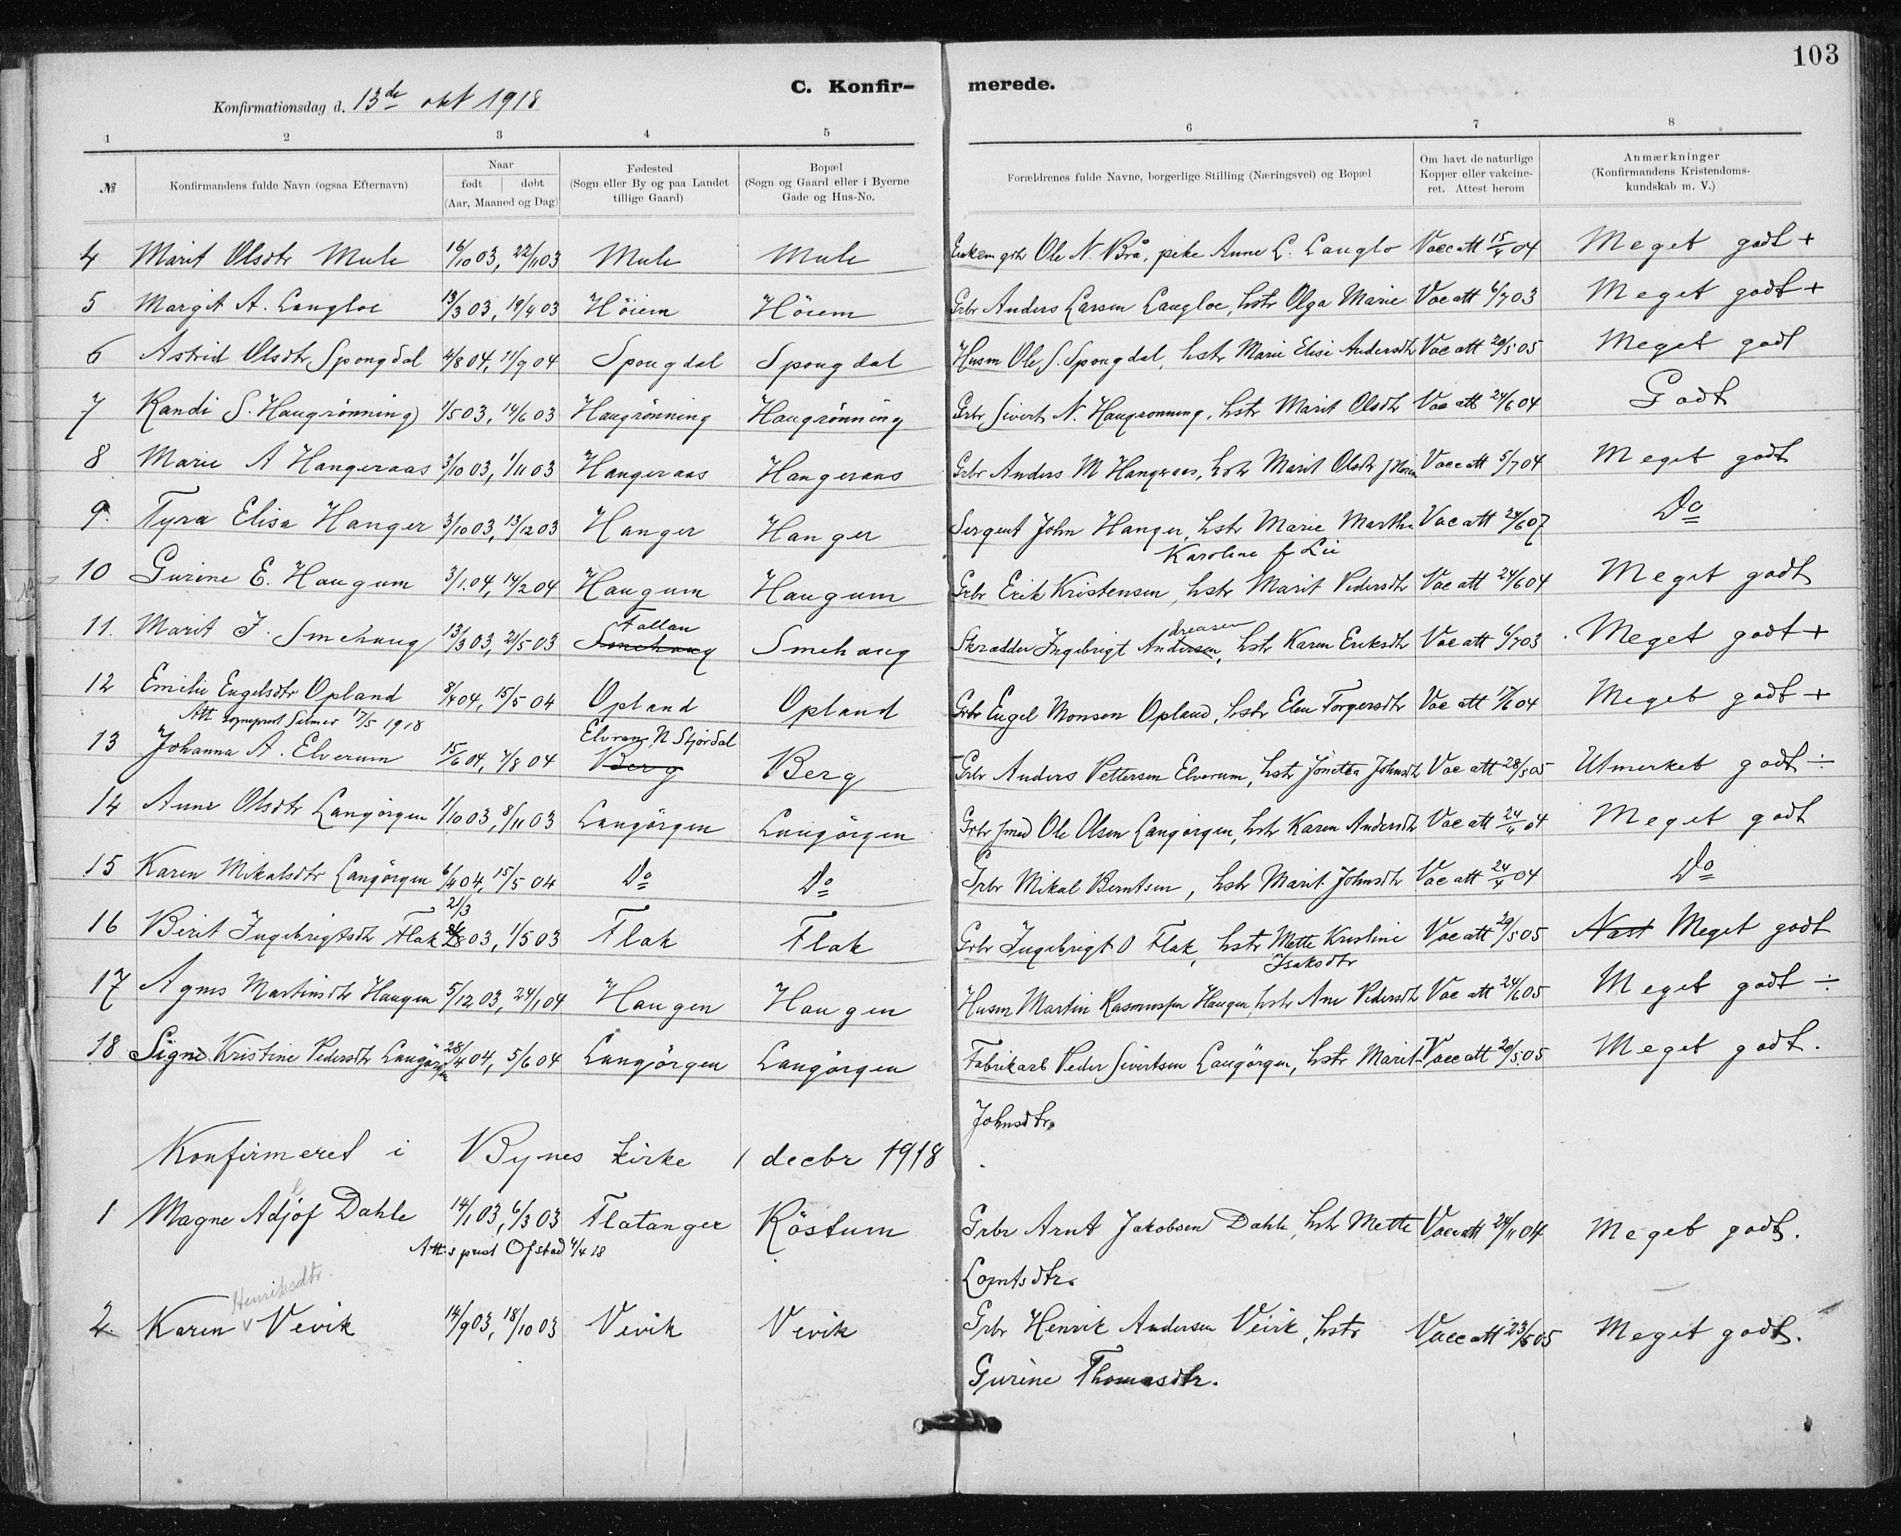 103
C. Konfir- merede.
Konfirmationsdag d. 13de okt 1918
1 2 3 4 5 6 7 8
№ Konfirmandens fulde Navn (ogsaa Efternavn) Naar født døbt (Aar, Maaned og Dag) Fødested (Sogn eller By og paa Landet tillige Gaard) Bopæl (Sogn og Gaard eller i Byerne Gade og Hus-No. Forældrenes fulde Navne, borgerlige Stilling (Næringsvei) og Bopæl Om havt de naturlige Kopper eller vakcineret. Attest herom Anmærkninger (Konfirmandens Kristendomskundskab m. V.)
4 Marit Olsdtr Mule 16/10 03, 22/11 03 Mule Mule Ole N. Brå, pike Anne L. Langlo Vacc att 15/4 04 Meget godt +
5 Margit A. Langloe 13/3 03, 19/4 03 Höiem Höiem Grbr Anders Larsen Langloe, hstr Olga Marie Vac att 6/7 03 Meget godt +
6 Astrid Olsdtr Spongdal 4/8 04, 11/9 04 Spongdal Spongdal Husm Ole S. Spongdal, hstr Marie Elise Andersdtr Vac att 20/5 05 Meget godt
7 Randi S. Haugrönning 1/5 03, 14/6 03 Haugrönning Haugrönning Grbr Sivert N. Haugrönning, hstr Marit Olsdtr Vac att 24/6 04 Godt
8 Marie A Hangeraas 3/10 03, 1/11 03 Hangeraas Hangeraas Grbr Anders M Hangraas, hstr Marit Olsdtr Vacc att 5/7 04 Meget godt
9. Tyra Elisa Hanger 3/10 03, 13/12 03 Hanger Hanger Sergent John Hanger, hstr Marie Martha Vac att 24/6 07 Do
Karoline f Lie
10 Gurine E. Haugum 3/1.04, 14/2 04 Haugum Haugum Grbr Erik Kristensen, hstr Marit Pedersdtr Vac att 24/6 04 Meget godt
Fallan dreasen
11. Marit I. Smehaug 13/3 03, 21/5 03 Smehaug Smehaug Skrædder Ingebrigt Andersen, hstr Karen Eriksdtr Vac att 6/7 03 Meget godt +
12 Emilie Engelsdtr Opland 8/4 04, 15/5 04 Opland Opland Grbr Engel Monsen Opland, hstr Elen Torgersdtr Vac att 17/6 04 Meget godt +
Att sogneprest Selmer 17/5 1918 Elvran, N Stjørdal
13 Johanna A. Elverum 15/6 04, 7/8 04 Berg Berg Grbr Anders Pettersen Elverum, hstr Jönetta Johnsdtr Vac att 28/5 05 Utmerket godt ÷
14 Anne Olsdtr Langörgen 1/10 03, 8/11 03 Langörgen Langörgen Grbr smed Ole Olsen Langörgen, hstr Karen Andersdtr Vac att 24/4 04 Meget godt
15 Karen Mikalsdtr Langörgen 6/4 04, 15/5 04 Do Do Grbr Mikal Berntsen, hstr Marit Johnsdtr Vac att 24/4 04 Do
21/3
16 Berit Ingebrigtsdtr Flak 03, 1/5 03 Flak Flak Grbr Ingebrigt O Flak, hstr Mette Kristine Vac att 29/5 05 Meget godt
Isaksdtr
17 Agnes Martinsdtr Haugen 5/12 03, 24/1 04 Haugen Haugen Husm Martin Rasmussen Haugen, hstr Ane Pedersdtr Vac att 24/6 05 Meget godt ÷
18 Signe Kristine Pedersdtr Langörgen 28/4 04, 5/6 04 Langörgen Langörgen Fabrikarb Peder Sivertsen Langörgen, hstr Marit Vacc att 20/5.05 Meget godt.
Johnsdtr.
Konfirmeret i Bynes kirke 1 decbr 1918
1 Magne Adjof Dahle 14/1 03, 6/3 03 Flatanger Röstum Grbr Arnt Jakobsen Dahle, hstr Mette Vacc att 24/11 04 Meget godt.
Att s prest Ofstad 4/4 18
Lorntsdtr.
Henriksdtr
2. Karen v Vevik 14/9 03, 18/10 03 Vevik Vevik Grbr Henrik Andersen Veik, hstr Vacc att 23/5 05 Meget godt.
Gurine Thomasdtr.